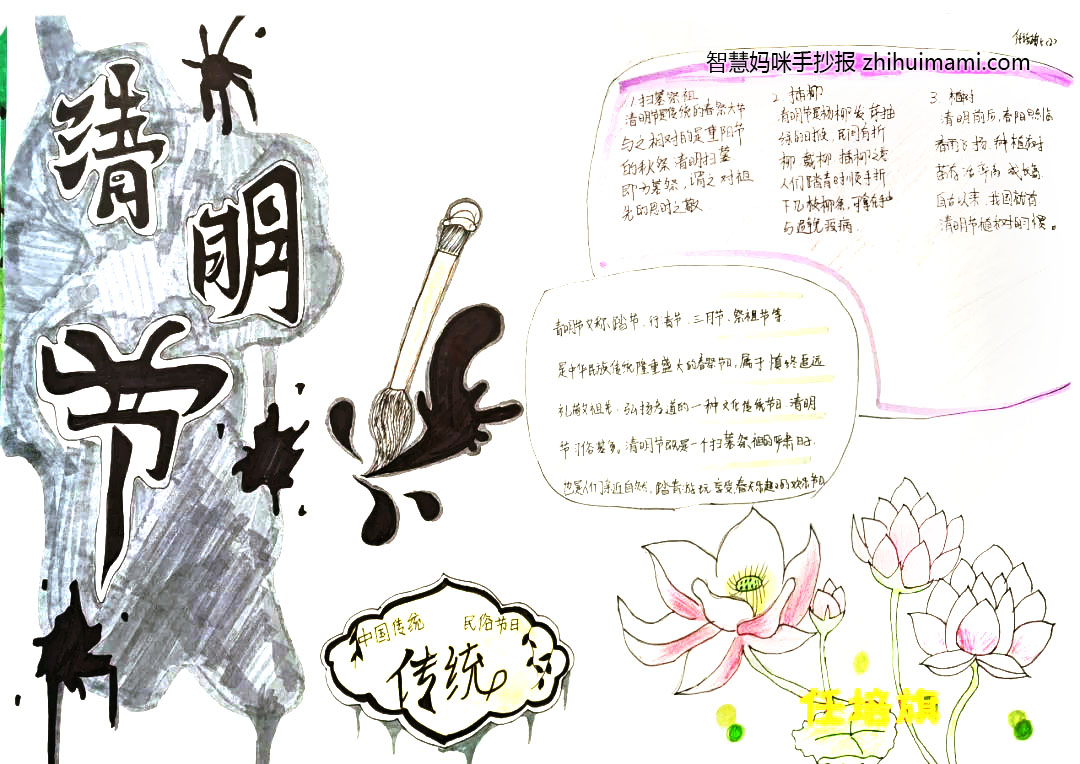 清明节
智慧妈咪手抄报 zhihuimami.com
1 扫墓祭祖
清明节是传统的春祭大节
与之相对的是重阳节
的秋祭 清明扫墓
即为墓祭，谓之对祖
先的思时之敬
2. 插柳
清明节是杨柳发芽抽
绿的时候，民间有折
柳 戴柳 插柳之
人们踏青时顺手折
下几枝柳条，可拿在手
与避免疫病.
3. 植树
清明前后，春阳照临
春雨飞扬，种植树
苗 成活率高 成长
自古以来，我国就有
清明节植树的习惯。
清明节又称、踏节、行清节、三月节、祭祖节等.
是中华民族传统隆重盛大的春祭节日，属于慎终追远
礼敬祖先、弘扬孝道的一种文化传统节日 清明
节习俗甚多。清明节既是一个扫墓祭祖的肃日子.
也是人们亲近自然、踏青游玩 享受春天乐趣的欢乐节日
中国传统 民俗节日
传统
任培旗